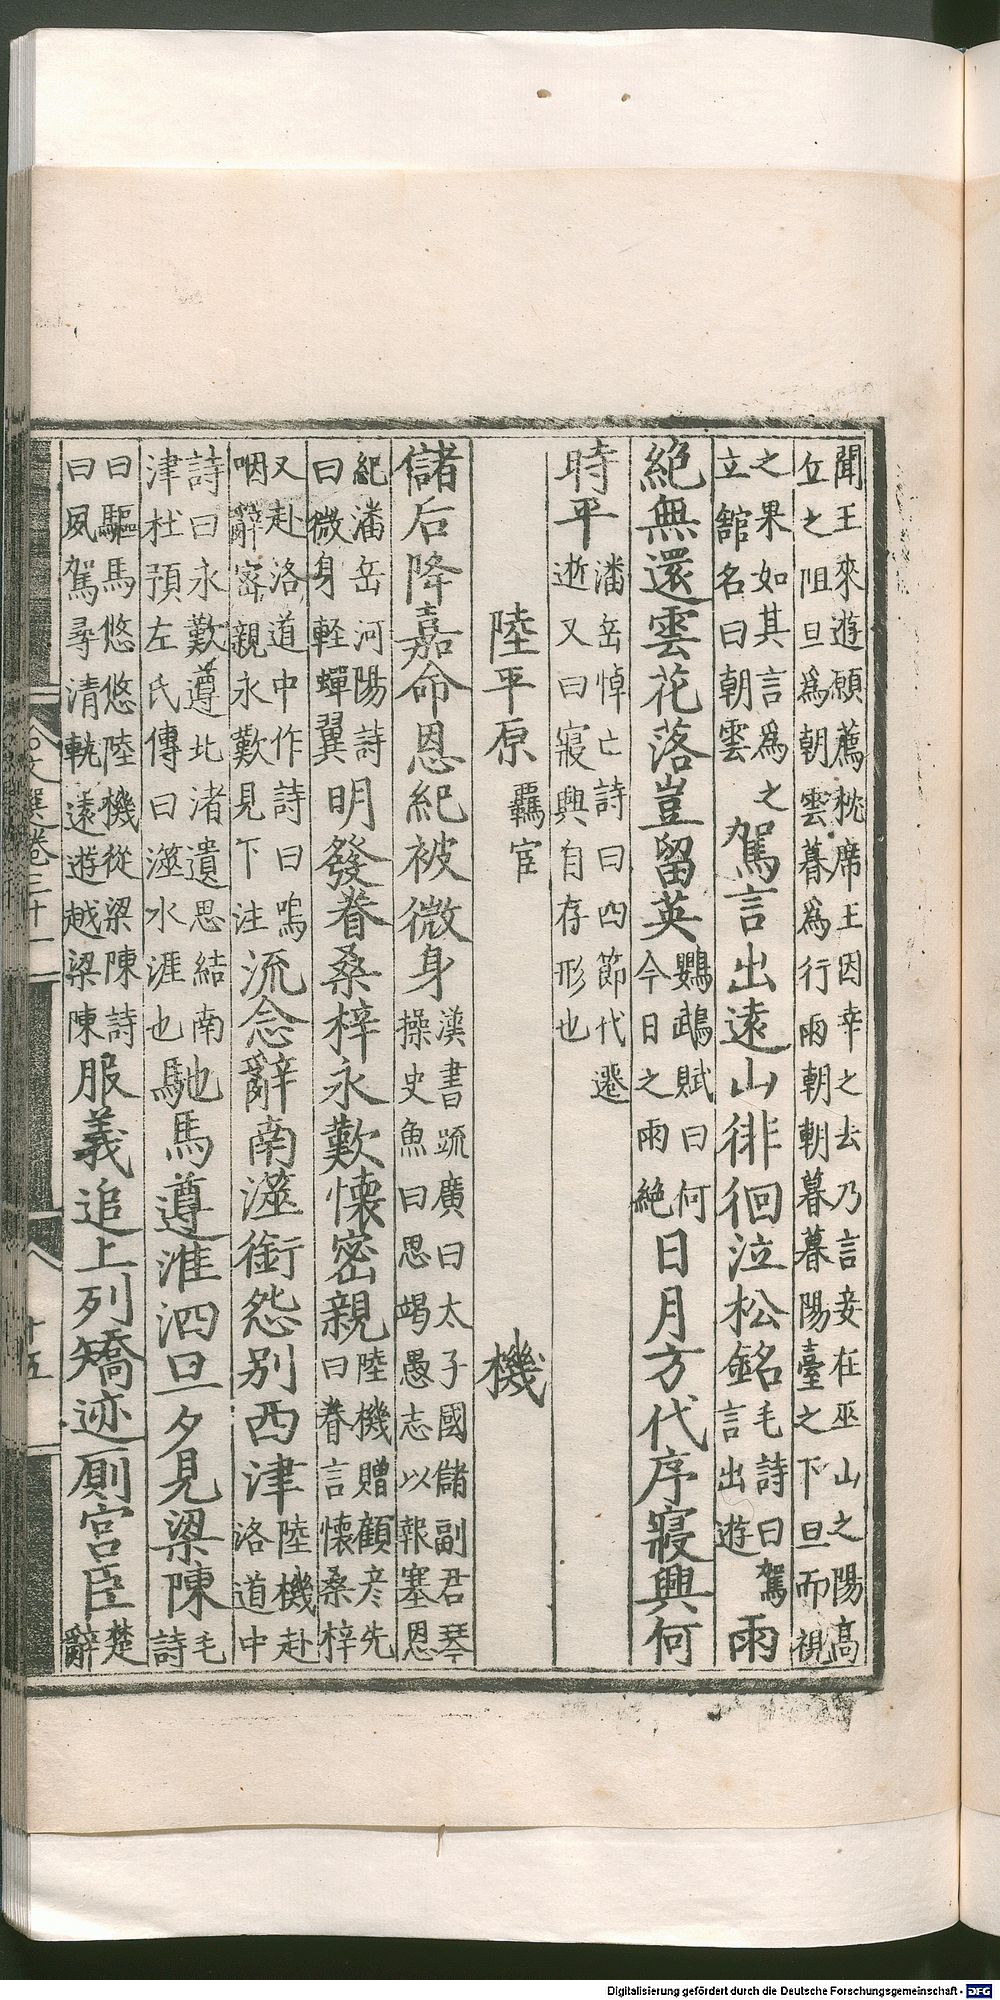 聞王來遊願薦枕席王因幸之去乃言妾在巫山之陽高
丘之阻旦爲朝雲暮爲行雨朝朝暮暮陽臺之下旦而視
之果如其言爲之
立舘名曰朝雲
駕言出遠山徘徊泣松銘
毛詩曰駕
言出遊
雨
絶無還雲花落豈留英
鸚鵡賦曰何
今日之雨絶
日月方代序寢興何
時平
潘岳悼亡詩曰四節代遷
逝又曰寢興自存形也
陸平原 羈宦 機
儲后降嘉命恩紀被微身
漢書疏廣曰太子國儲副君琴
操史魚曰思竭愚志以報塞恩
紀潘岳河陽詩
曰微身輕蟬翼
明發眷桑梓永歎懷密親
陸機贈顧彦先
曰眷言懷桑梓
又赴洛道中作詩曰嗚
咽辭密親永歎見下注
流念辭南澨銜怨别西津
陸機赴
洛道中
詩曰永歎遵北渚遺思結南
津杜預左氏傳曰澨水涯也
馳馬遵淮泗旦夕見梁陳
毛
詩
曰驅馬悠悠陸機從梁陳詩
曰夙駕尋清軌遠遊越梁陳
服義追上列矯迹厠宮臣
楚
辭
文選卷三十一
十五
Digitalisierung gefördert durch die Deutsche Forschungsgemeinschaft - DFG